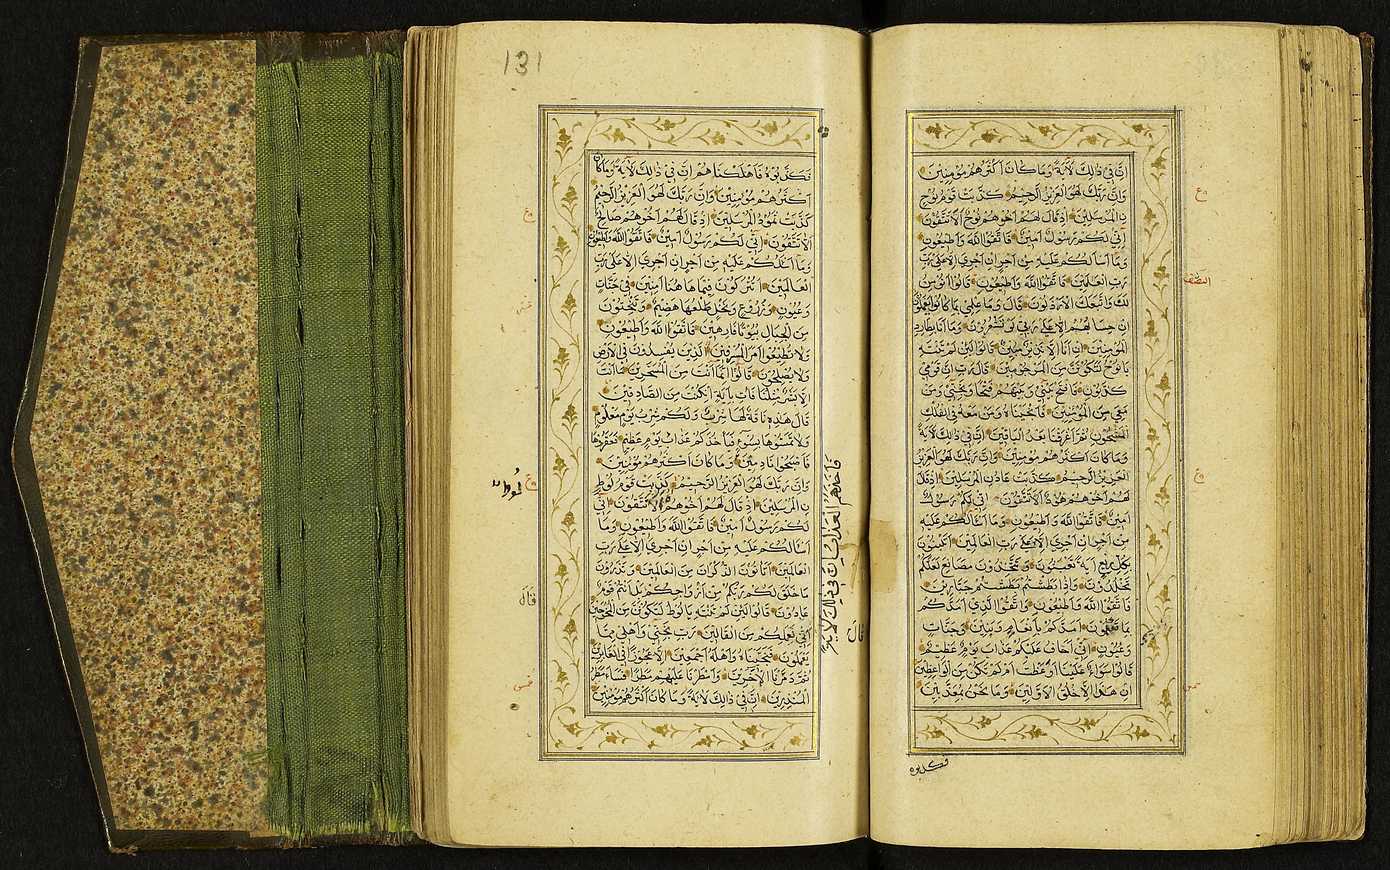 اِنَّ فِي ذٰلِكَ لَآيَةً وَمَا كَانَ اَكْثَرُهُمْ مُؤْمِنِينَ
وَاِنَّ رَبَّكَ لَهُوَ الْعَزِيزُ الرَّحِيمُ كَذَّبَتْ قَوْمُ نُوحٍ
نِ الْمُرْسَلِينَ اِذْ قَالَ لَهُمْ اَخُوهُمْ نُوحٌ اَلَا تَتَّقُونَ
اِنِّي لَكُمْ رَسُولٌ اَمِينٌ فَاتَّقُوا اللّٰهَ وَاَطِيعُونِ
وَمَا اَسْاَلُكُمْ عَلَيْهِ مِنْ اَجْرٍ اِنْ اَجْرِيَ اِلَّا عَلٰى رَبِّ
رَبِّ الْعَالَمِينَ فَاتَّقُوا اللّٰهَ وَاَطِيعُونِ قَالُوا اَنُؤْمِنُ
لَكَ وَاتَّبَعَكَ الْاَرْذَلُونَ قَالَ وَمَا عِلْمِي بِمَا كَانُوا يَعْمَلُونَ
اِنْ حِسَابُهُمْ اِلَّا عَلٰى رَبِّي لَوْ تَشْعُرُونَ وَمَا اَنَا بِطَارِدِ
الْمُؤْمِنِينَ اِنْ اَنَا اِلَّا نَذِيرٌ مُبِينٌ قَالُوا لَئِنْ لَمْ تَنْتَهِ
يَا نُوحُ لَتَكُونَنَّ مِنَ الْمَرْجُومِينَ قَالَ رَبِّ اِنَّ قَوْمِي
كَذَّبُونِ فَافْتَحْ بَيْنِي وَبَيْنَهُمْ فَتْحًا وَنَجِّنِي وَمَنْ
مَعِيَ مِنَ الْمُؤْمِنِينَ فَاَنْجَيْنَاهُ وَمَنْ مَعَهُ فِي الْفُلْكِ
الْمَشْحُونِ ثُمَّ اَغْرَقْنَا بَعْدُ الْبَاقِينَ اِنَّ فِي ذٰلِكَ لَآيَةً
وَمَا كَانَ اَكْثَرُهُمْ مُؤْمِنِينَ وَاِنَّ رَبَّكَ لَهُوَ الْعَزِيزُ
الْعَزِيزُ الرَّحِيمُ كَذَّبَتْ عَادُنِ الْمُرْسَلِينَ اِذْ قَالَ
لَهُمْ اَخُوهُمْ هُودٌ اَلَا تَتَّقُونَ اِنِّي لَكُمْ رَسُولٌ
اَمِينٌ فَاتَّقُوا اللّٰهَ وَاَطِيعُونِ وَمَا اَسْاَلُكُمْ عَلَيْهِ
مِنْ اَجْرٍ اِنْ اَجْرِيَ اِلَّا عَلٰى رَبِّ الْعَالَمِينَ اَتَبْنُونَ
بِكُلِّ رِيعٍ آيَةً تَعْبَثُونَ وَتَتَّخِذُونَ مَصَانِعَ لَعَلَّكُمْ
تَخْلُدُونَ وَاِذَا بَطَشْتُمْ بَطَشْتُمْ جَبَّارِينَ
فَاتَّقُوا اللّٰهَ وَاَطِيعُونِ وَاتَّقُوا الَّذِي اَمَدَّكُمْ
بِمَا تَعْلَمُونَ اَمَدَّكُمْ بِاَنْعَامٍ وَبَنِينَ وَجَنَّاتٍ
وَعُيُونٍ اِنِّي اَخَافُ عَلَيْكُمْ عَذَابَ يَوْمٍ عَظِيمٍ
قَالُوا سَوَاءٌ عَلَيْنَا اَوَعَظْتَ اَمْ لَمْ تَكُنْ مِنَ الْوَاعِظِينَ
اِنْ هٰذَا اِلَّا خُلُقُ الْاَوَّلِينَ وَمَا نَحْنُ بِمُعَذَّبِينَ
فكذبوه
ع
النصف
ع
131
فَكَذَّبُوهُ فَاَهْلَكْنَاهُمْ اِنَّ فِي ذٰلِكَ لَآيَةً وَمَا كَانَ
اَكْثَرُهُمْ مُؤْمِنِينَ وَاِنَّ رَبَّكَ لَهُوَ الْعَزِيزُ الرَّحِيمُ
كَذَّبَتْ ثَمُودُ الْمُرْسَلِينَ اِذْ قَالَ لَهُمْ اَخُوهُمْ صَالِحٌ
اَلَا تَتَّقُونَ اِنِّي لَكُمْ رَسُولٌ اَمِينٌ فَاتَّقُوا اللّٰهَ وَاَطِيعُونِ
وَمَا اَسْئَلُكُمْ عَلَيْهِ مِنْ اَجْرٍ اِنْ اَجْرِيَ اِلَّا عَلٰى رَبِّ
الْعَالَمِينَ اَتُتْرَكُونَ فِيمَا هَاهُنَا آمِنِينَ فِي جَنَّاتٍ
وَعُيُونٍ وَزُرُوعٍ وَنَخْلٍ طَلْعُهَا هَضِيمٌ وَتَنْحِتُونَ
مِنَ الْجِبَالِ بُيُوتًا فَارِهِينَ فَاتَّقُوا اللّٰهَ وَاَطِيعُونِ
وَلَا تُطِيعُوا اَمْرَ الْمُسْرِفِينَ الَّذِينَ يُفْسِدُونَ فِي الْاَرْضِ
وَلَا يُصْلِحُونَ قَالُوا اِنَّمَا اَنْتَ مِنَ الْمُسَحَّرِينَ مَا اَنْتَ
اِلَّا بَشَرٌ مِثْلُنَا فَاْتِ بِآيَةٍ اِنْ كُنْتَ مِنَ الصَّادِقِينَ
قَالَ هٰذِهِ نَاقَةٌ لَهَا شِرْبٌ وَلَكُمْ شِرْبُ يَوْمٍ مَعْلُومٍ
وَلَا تَمَسُّوهَا بِسُوءٍ فَيَاْخُذَكُمْ عَذَابُ يَوْمٍ عَظِيمٍ فَعَقَرُوهَا
فَاَصْبَحُوا نَادِمِينَ وَمَا كَانَ اَكْثَرُهُمْ مُؤْمِنِينَ
وَاِنَّ رَبَّكَ لَهُوَ الْعَزِيزُ الرَّحِيمُ كَذَّبَتْ قَوْمُ لُوطٍ
نِ الْمُرْسَلِينَ اِذْ قَالَ لَهُمْ اَخُوهُمْ اَلَا تَتَّقُونَ اِنِّي
لَكُمْ رَسُولٌ اَمِينٌ فَاتَّقُوا اللّٰهَ وَاَطِيعُونِ وَمَا
اَسْاَلُكُمْ عَلَيْهِ مِنْ اَجْرٍ اِنْ اَجْرِيَ اِلَّا عَلٰى رَبِّ
الْعَالَمِينَ اَتَاْتُونَ الذُّكْرَانَ مِنَ الْعَالَمِينَ وَتَذَرُونَ
مَا خَلَقَ لَكُمْ رَبُّكُمْ مِنْ اَزْوَاجِكُمْ بَلْ اَنْتُمْ قَوْمٌ
عَادُونَ قَالُوا لَئِنْ لَمْ تَنْتَهِ يَا لُوطُ لَتَكُونَنَّ مِنَ الْمُخْرَجِينَ
اِنِّي لِعَمَلِكُمْ مِنَ الْقَالِينَ رَبِّ نَجِّنِي وَاَهْلِي مِمَّا
يَعْمَلُونَ فَنَجَّيْنَاهُ وَاَهْلَهُ اَجْمَعِينَ اِلَّا عَجُوزًا فِي الْغَابِرِينَ
ثُمَّ دَمَّرْنَا الْآخَرِينَ وَاَمْطَرْنَا عَلَيْهِمْ مَطَرًا فَسَاءَ مَطَرُ
الْمُنْذَرِينَ اِنَّ فِي ذٰلِكَ لَآيَةً وَمَا كَانَ اَكْثَرُهُمْ مُؤْمِنِينَ
فَاَخَذَهُمُ الْعَذَابُ اِنَّ فِي ذٰلِكَ لَآيَةً
قَالَ
ع
لُوطٌ
ع
قَالَ
خمس